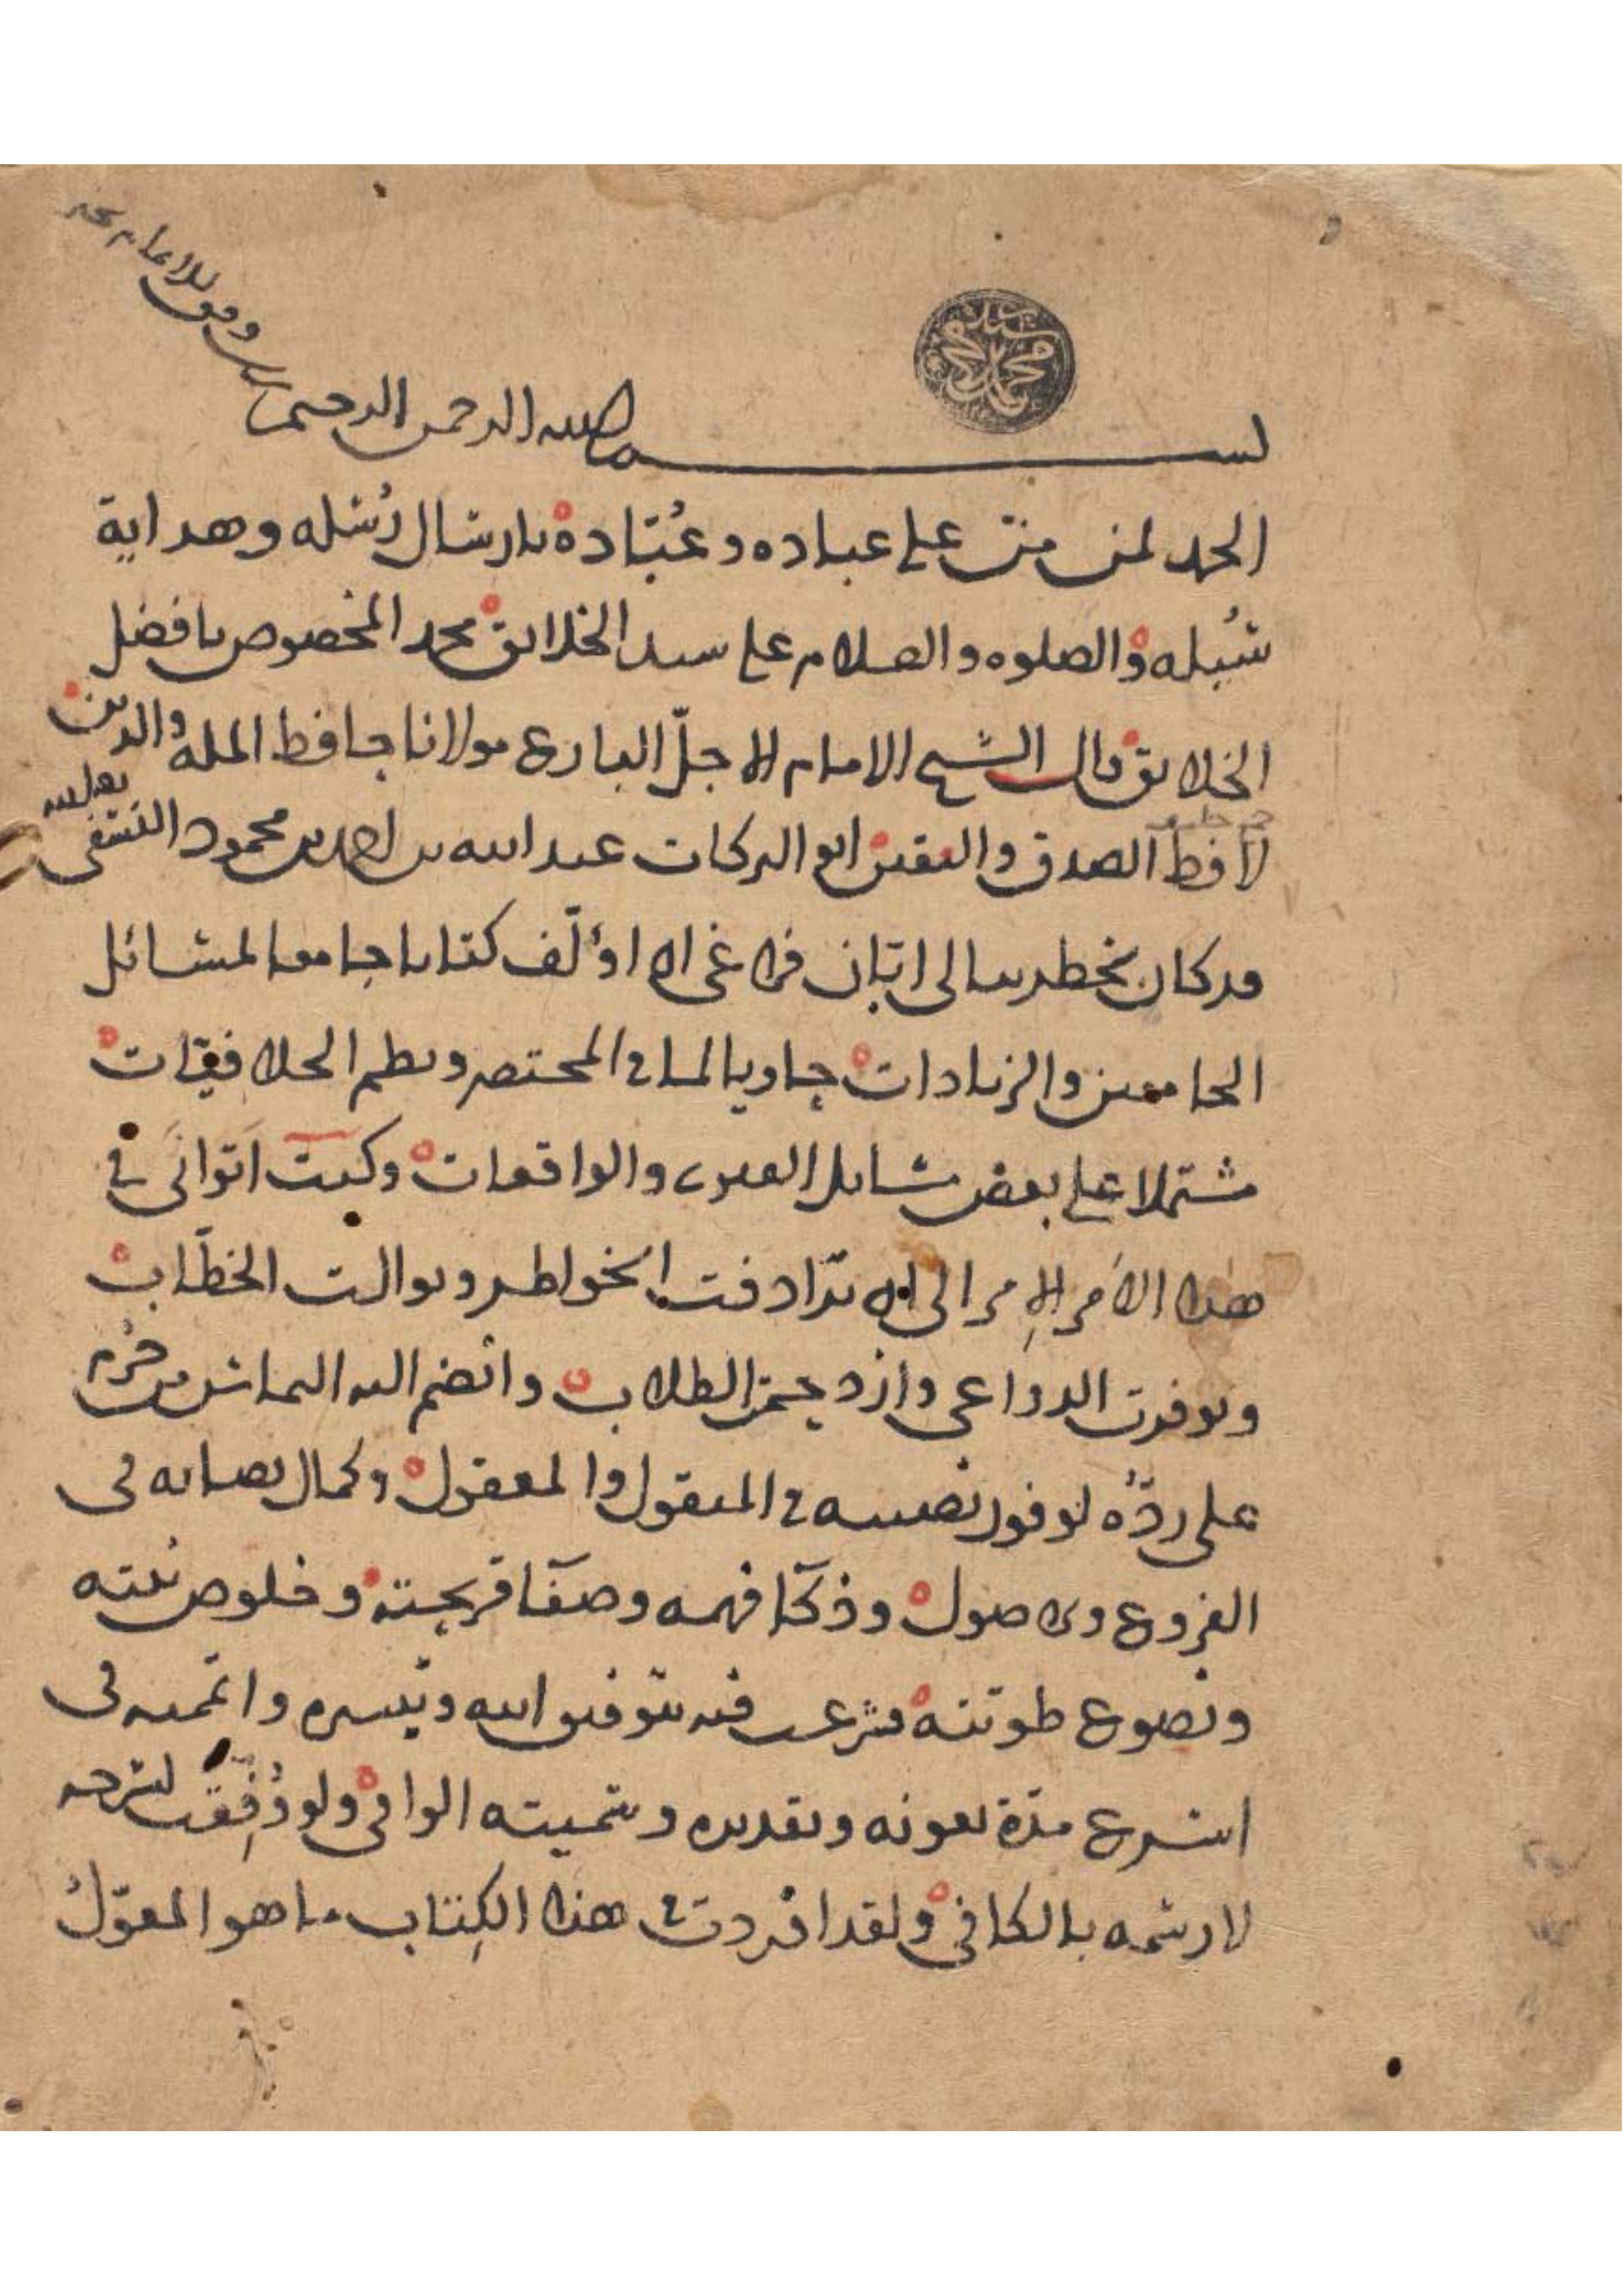 بسم الله الرحمن الرحيم رب وفق للاتمام بخير
الحمد لمن منّ على عباده وعُبّاده بارسال رُسله وهداية
سُبله والصلوه والسلام على سيد الخلايق محمد المخصوص بافضل
الخلايق قال الشيخ الامام الاجلّ البارع مولانا حافظ الملة والدين
لافظ الصدق واليقين ابو البركات عبد الله بن احمد بن محمود النسفى
قد كان يخطر ببالى ابّان فراغى ان اؤلّف كتابا جامعا لمسائل
الجامعين والزيادات حاويا لما فى المختصر ونظم الخلافيات
مشتملا على بعض مسايل الفتوى والواقعات وكنت اتوانى فى
هذا الامر الإمر الى ان ترادفت الخواطر وتوالت الخطّاب
وتوفرت الدواعى وازدحمت الطلاب وانضم اليه التماس من حَرُم
على ردّه لوفور نصيبه فى المنقول والمعقول وكمال نصابه فى
الفروع والاصول وذكا فهمه وصفا قريحته وخلوص نيته
ونصوع طويته فشرعت فيه بتوفيق الله وتيسيره واتممته فى
اسرع مدّة بعونه وتقديره وسميته الوافى ولو وُفّقت لشرحه
لارسمه بالكافى ولقد افردت فى هذا الكِتاب ما هو المعوّلُ